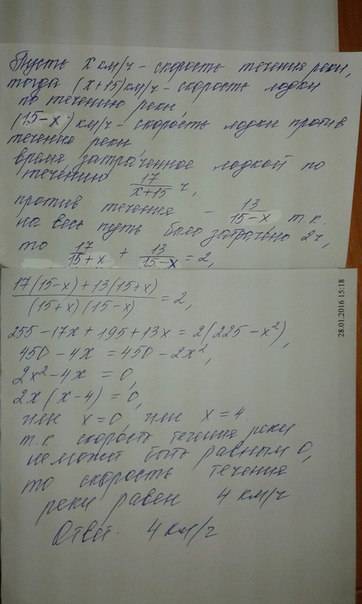 Пусть x км/ч - скорость течения реки,
тогда (x+15) км/ч - скорость лодки
по течению реки
(15-x) км/ч - скорость лодки против
течение реки
время затраченное лодкой по
течению 17/(x+15) ч,
против течение - 13/(15-x) т.к.
на весь путь было затрачено 2ч,
то 17/(15+x) + 13/(15-x) = 2,
(17(15-x)+13(15+x))/((15+x)(15-x)) = 2,
255-17x+195+13x=2(225-x²),
450-4x=450-2x²,
2x²-4x=0,
2x(x-4)=0,
или x=0 или x=4
т.к скорость течение реки
не может быть равным 0,
то скорость течение
реки равен 4 км/ч
Ответ. 4 км/ч
28.01.2016 15:18